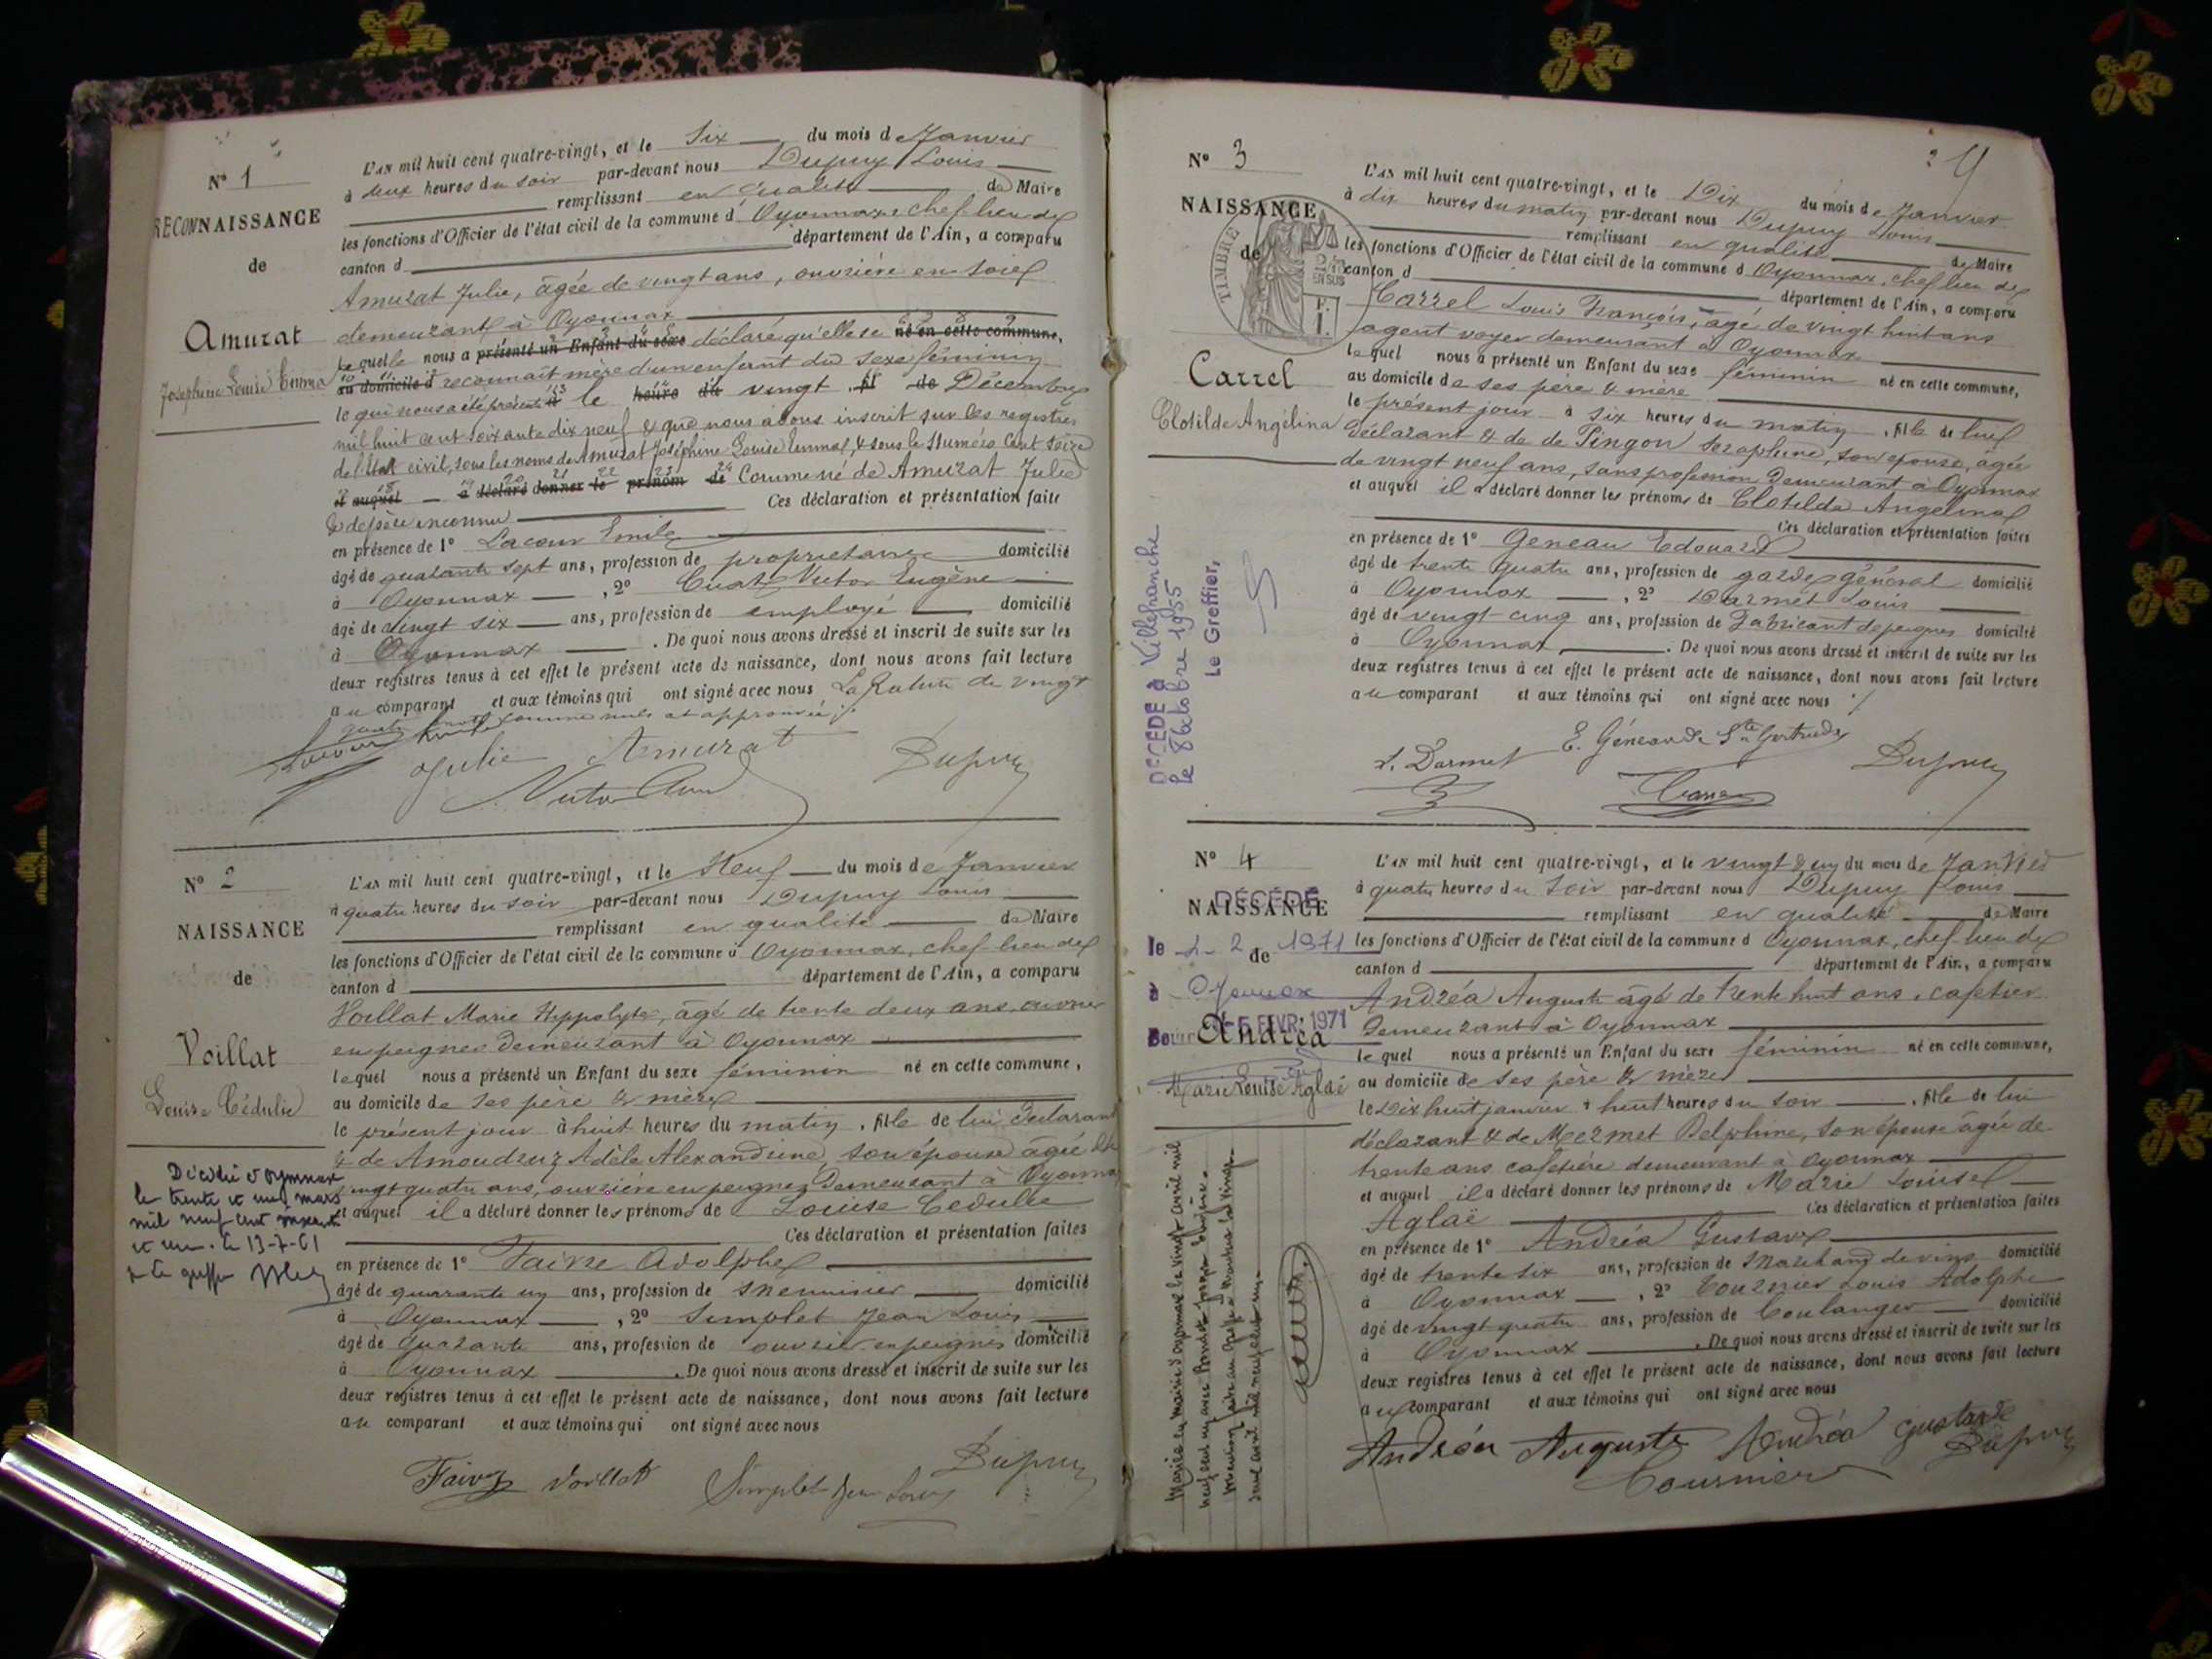 N° 1
RECONNAISSANCE
de
Amurat
Joséphine Louise Emma
L'AN mil huit cent quatre-vingt, et le Six du mois de Janvier
à deux heures du soir par-devant nous Dupuy Louis
remplissant en qualité de Maire
les fonctions d'Officier de l'état civil de la commune d'Oyonnax, chef-lieu de
canton d département de l'Ain, a comparu
Amurat Julie, âgée de vingt ans, ouvrière en soie
demeurant à Oyonnax
laquelle nous a présenté un Enfant du sexe déclaré qu'elle se né en cette commune,
au domicile d reconnaît mère d'un enfant du sexe féminin
le qui nous a été présenté à le heure du vingt fil de Décembre
mil huit cent soixante dix neuf & que nous avons inscrit sur les registres
de l'état civil, sous les noms de Amurat Joséphine Louise Emma, & sous le Numéro Cent seize
et auquel a déclaré donner le prénom de Comme né de Amurat Julie
& de père inconnu Ces déclaration et présentation faites
en présence de 1° Lacour Emile
âgé de quarante sept ans, profession de propriétaire domicilié
à Oyonnax, 2° Victor Eugène
âgé de vingt six ans, profession de employé domicilié
à Oyonnax. De quoi nous avons dressé et inscrit de suite sur les
deux registres tenus à cet effet le présent acte de naissance, dont nous avons fait lecture
au comparant et aux témoins qui ont signé avec nous La Rature de vingt
quatre mots comme nuls et approuvée
Julie Amurat Dupuy
Victor
N° 2
NAISSANCE
de
Voillat
Louise Cédulie
Décédée à Oyonnax
le trente et un mars
mil neuf cent soixante
et un. Le 13-7-61
Le greffier
L'AN mil huit cent quatre-vingt, et le Neuf du mois de Janvier
à quatre heures du soir par-devant nous Dupuy Louis
remplissant en qualité de Maire
les fonctions d'Officier de l'état civil de la commune d Oyonnax, chef-lieu de
canton d département de l'Ain, a comparu
Voillat Marie Hippolyte, âgé de trente deux ans, ouvrier
en peignes demeurant à Oyonnax
lequel nous a présenté un Enfant du sexe féminin né en cette commune,
au domicile de ses père & mère
le présent jour à huit heures du matin, fille de lui déclarant
& de Amoudruz Adèle Alexandrine, son épouse âgée de
vingt quatre ans, ouvrière en peignes demeurant à Oyonnax
et auquel il a déclaré donner les prénoms de Louise Cédulie
Ces déclaration et présentation faites
en présence de 1° Faivre Adolphe
âgé de quarante un ans, profession de Menuisier domicilié
à Oyonnax, 2° Simplet Jean Louis
âgé de quarante ans, profession de ouvrier en peignes domicilié
à Oyonnax. De quoi nous avons dressé et inscrit de suite sur les
deux registres tenus à cet effet le présent acte de naissance, dont nous avons fait lecture
au comparant et aux témoins qui ont signé avec nous
Faivre Voillat Simplet Jean Louis Dupuy
N° 3
NAISSANCE
de
TIMBRE
2/10 EN SUS
Carrel
Clotilde Angélina
DÉCÉDÉ à Villefranche
le 8 octobre 1955
Le Greffier,
L'AN mil huit cent quatre-vingt, et le Dix du mois de Janvier
à dix heures du matin par-devant nous Dupuy Louis
remplissant en qualité de Maire
les fonctions d'Officier de l'état civil de la commune d Oyonnax, chef-lieu de
canton d département de l'Ain, a comparu
Carrel Louis François, âgé de vingt huit ans
agent voyer demeurant à Oyonnax
lequel nous a présenté un Enfant du sexe féminin né en cette commune,
au domicile de ses père & mère
le présent jour à six heures du matin, fille de lui
déclarant & de de Pingon Séraphine, son épouse, âgée
de vingt neuf ans, sans profession demeurant à Oyonnax
et auquel il a déclaré donner les prénoms de Clotilde Angelina
Ces déclaration et présentation faites
en présence de 1° Geneau Edouard
âgé de trente quatre ans, profession de garde général domicilié
à Oyonnax, 2° Darmet Louis
âgé de vingt cinq ans, profession de Fabricant de peignes domicilié
à Oyonnax. De quoi nous avons dressé et inscrit de suite sur les
deux registres tenus à cet effet le présent acte de naissance, dont nous avons fait lecture
au comparant et aux témoins qui ont signé avec nous
L. Darmet E. Géneau de Ste Gertrude Dupuy
Carrel
N° 4
NAISSANCE
de
DÉCÉDÉ
le 1-2 1971
à Oyonnax
FEVR 1971
Andréa
Marie Louise Aglaé
L'AN mil huit cent quatre-vingt, et le vingt & un du mois de Janvier
à quatre heures du soir par-devant nous Dupuy Louis
remplissant en qualité de Maire
les fonctions d'Officier de l'état civil de la commune d Oyonnax, chef-lieu de
canton d département de l'Ain, a comparu
Andréa Auguste âgé de trente huit ans, cafetier
demeurant à Oyonnax
lequel nous a présenté un Enfant du sexe féminin né en cette commune,
au domicile de ses père & mère
le Dix huit janvier à huit heures du soir, fille de lui
déclarant & de Mermet Delphine, son épouse âgée de
trente ans cafetière demeurant à Oyonnax
et auquel il a déclaré donner les prénoms de Marie Louise
Aglaé Ces déclaration et présentation faites
en présence de 1° Andréa Gustave
âgé de trente six ans, profession de Marchand de vins domicilié
à Oyonnax, 2° Tournier Louis Adolphe
âgé de vingt quatre ans, profession de boulanger domicilié
à Oyonnax. De quoi nous avons dressé et inscrit de suite sur les
deux registres tenus à cet effet le présent acte de naissance, dont nous avons fait lecture
au comparant et aux témoins qui ont signé avec nous
Andréa Auguste Andréa Gustave
Tournier Dupuy
Mariée en mairie d'Oyonnax le vingt avril mil
neuf cent un avec